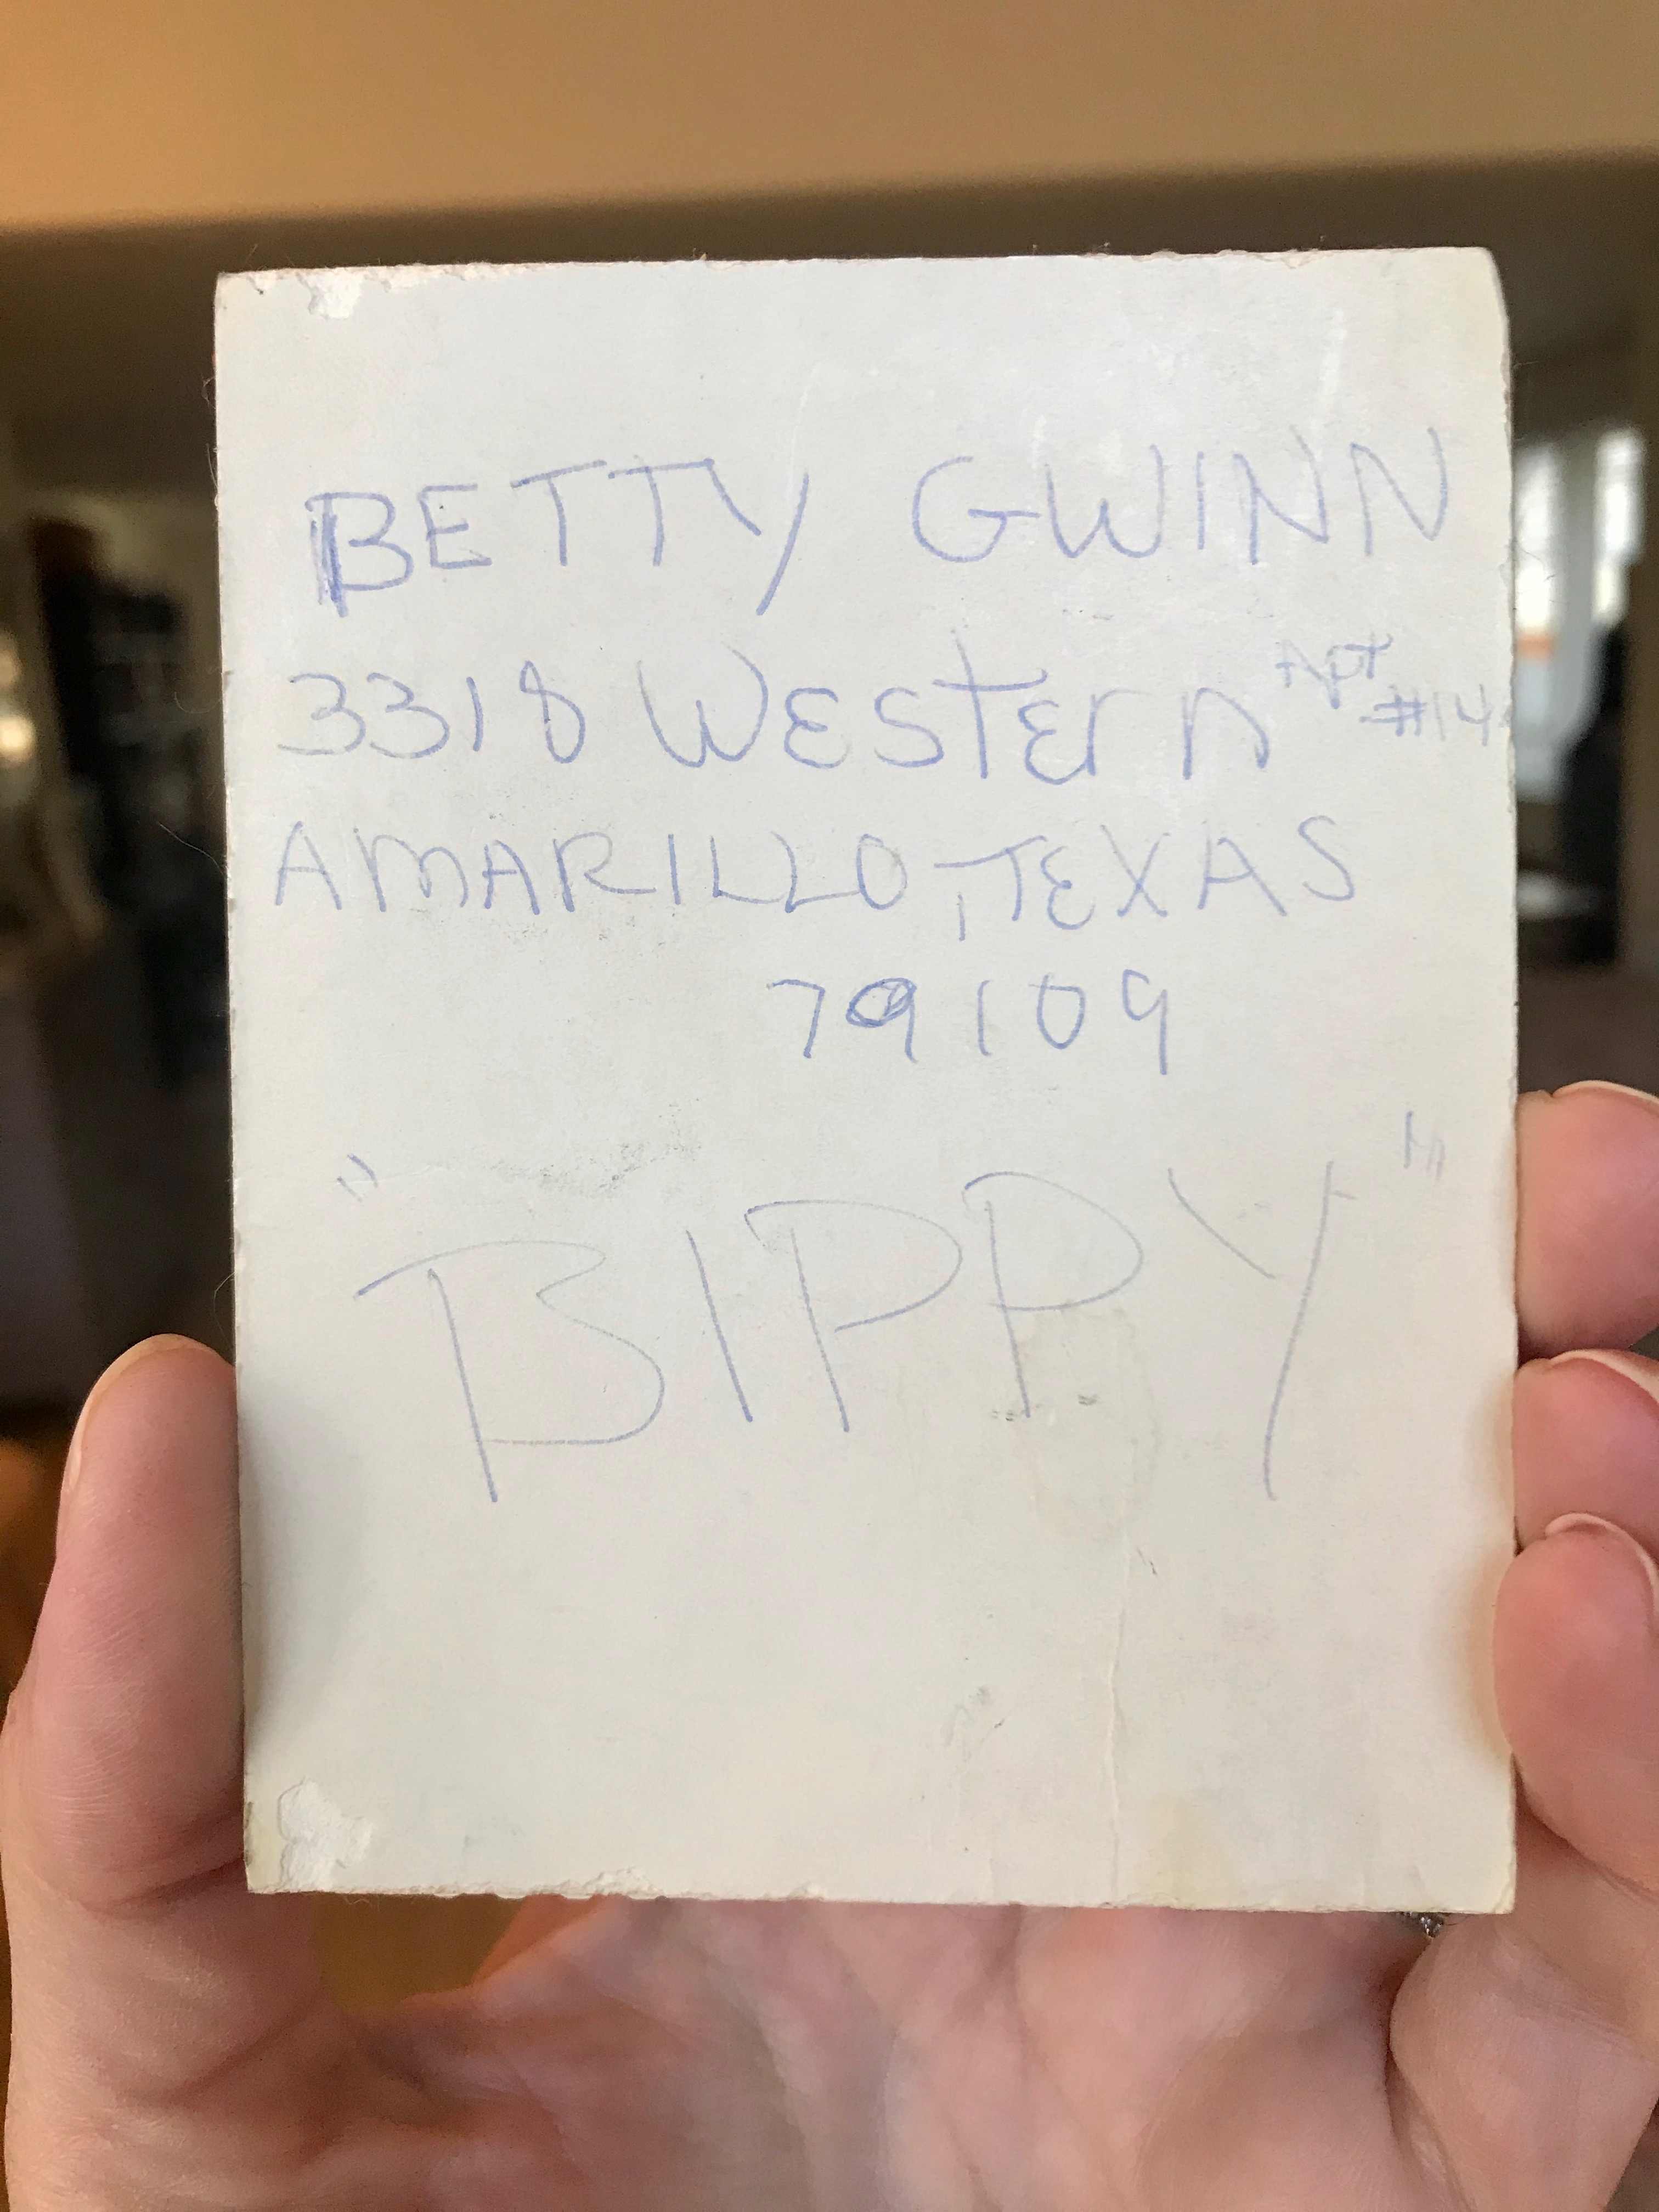 BETTY GWINN
3318 WESTErn Apt #14
AMARILLO, TEXAS
79109
"BIPPY"